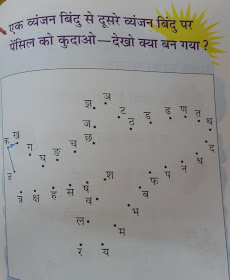 एक व्यंजन बिंदु से दूसरे व्यंजन बिंदु पर
पेंसिल को कुदाओ—देखो क्या बन गया?
झ ञ
ज ट ठ ड ढ ण त थ
क ख ग घ ङ च छ द
ध
ज्ञ त्र क्ष ह स ष श ब फ प न
व भ
ल म
र य